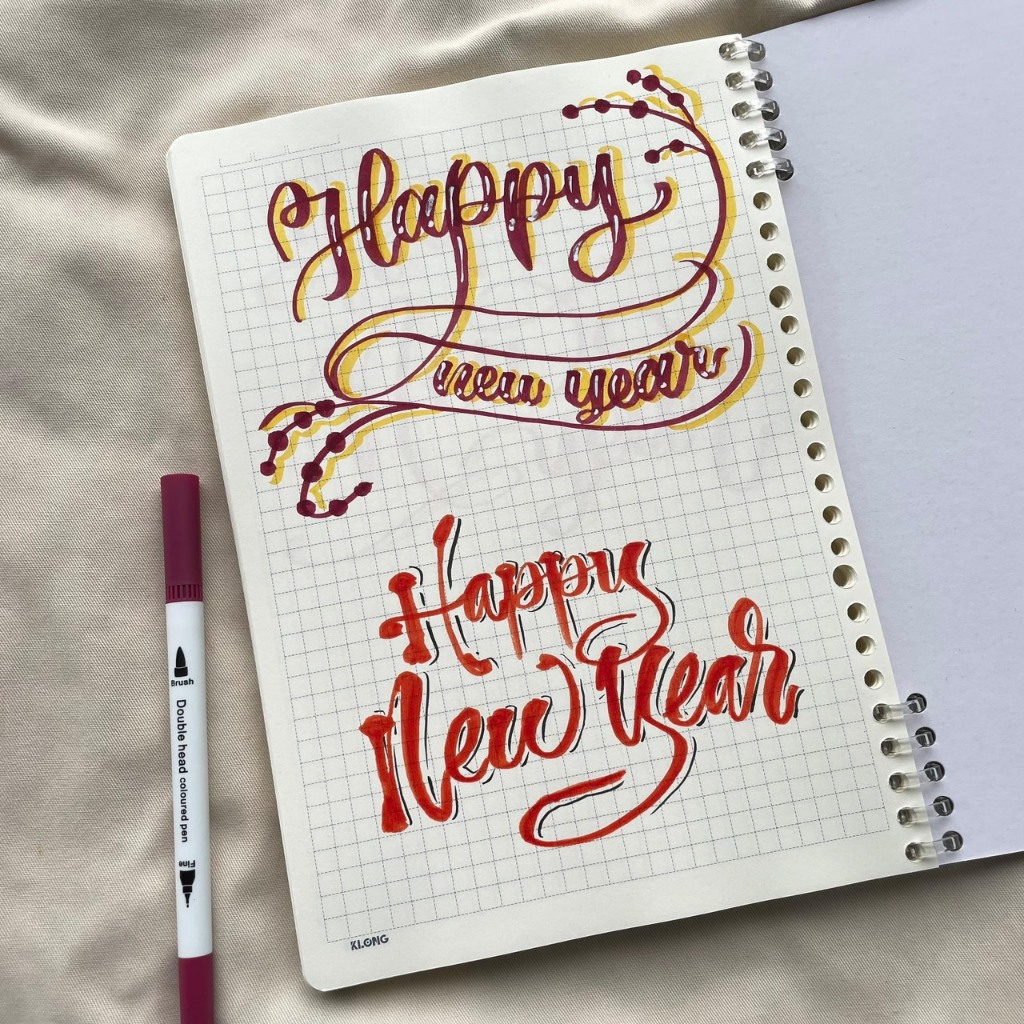 Happy
new year
Happy
New Year
KLONG
Brush
Double head coloured pen
Fine